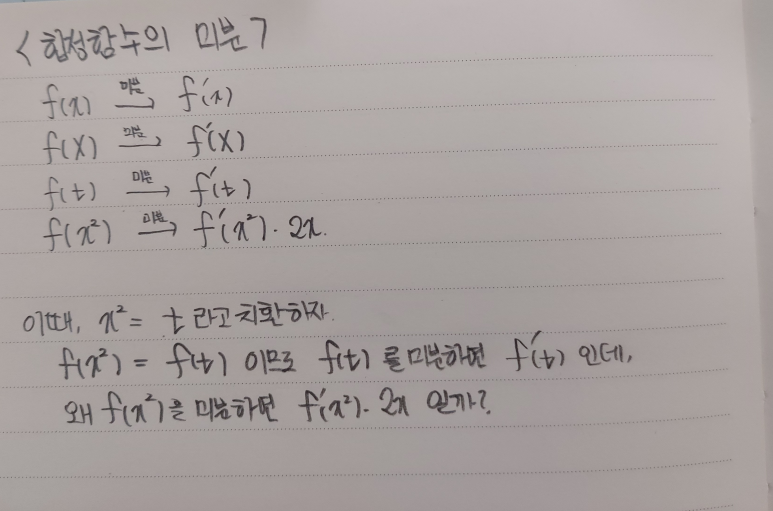 <합성함수의 미분>
f(x) 미분→ f'(x)
f(X) 미분→ f'(X)
f(t) 미분→ f'(t)
f(x²) 미분→ f'(x²)·2x.
이때, x² = t 라고 치환하자.
f(x²) = f(t) 이므로 f(t) 를 미분하면 f'(t) 인데,
왜 f(x²)을 미분하면 f'(x²)·2x 일까?